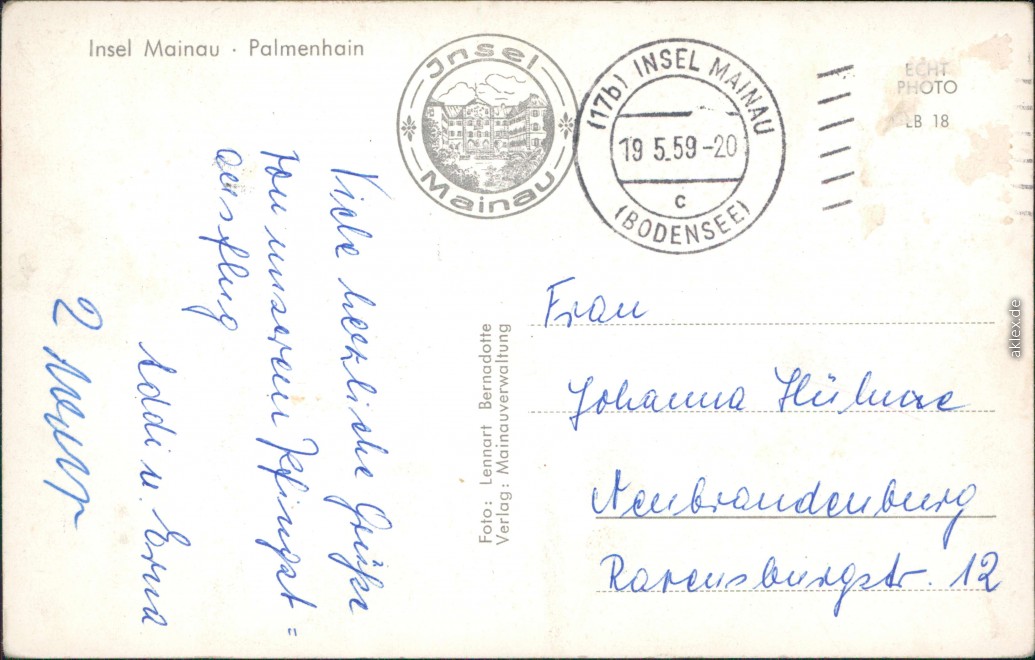 Insel Mainau · Palmenhain
Insel
Mainau
(17b) INSEL MAINAU
19 5.59-20
c
(BODENSEE)
ECHT
PHOTO
LB 18
Viele herzliche Grüße
von unserem Pfingst=
ausflug
Addi u. Erna
2
Foto: Lennart Bernadotte
Verlag: Mainauverwaltung
Frau
Johanna
Neubrandenburg
Ravensburgstr. 12
aklex.de